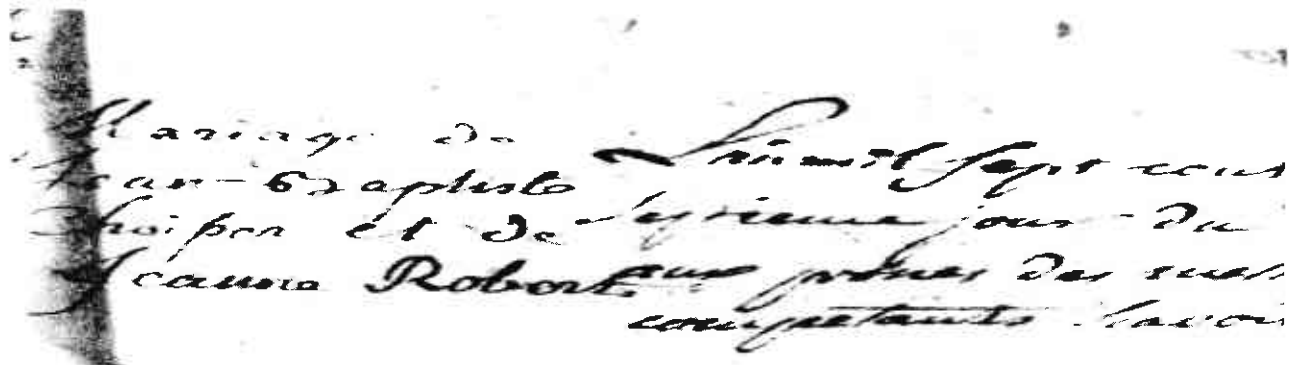 Mariage de
Jean-Baptiste
et de
Jeanne Robert
L'an mil sept cent
septieme jour du
aux prônes des mess
competants savoir